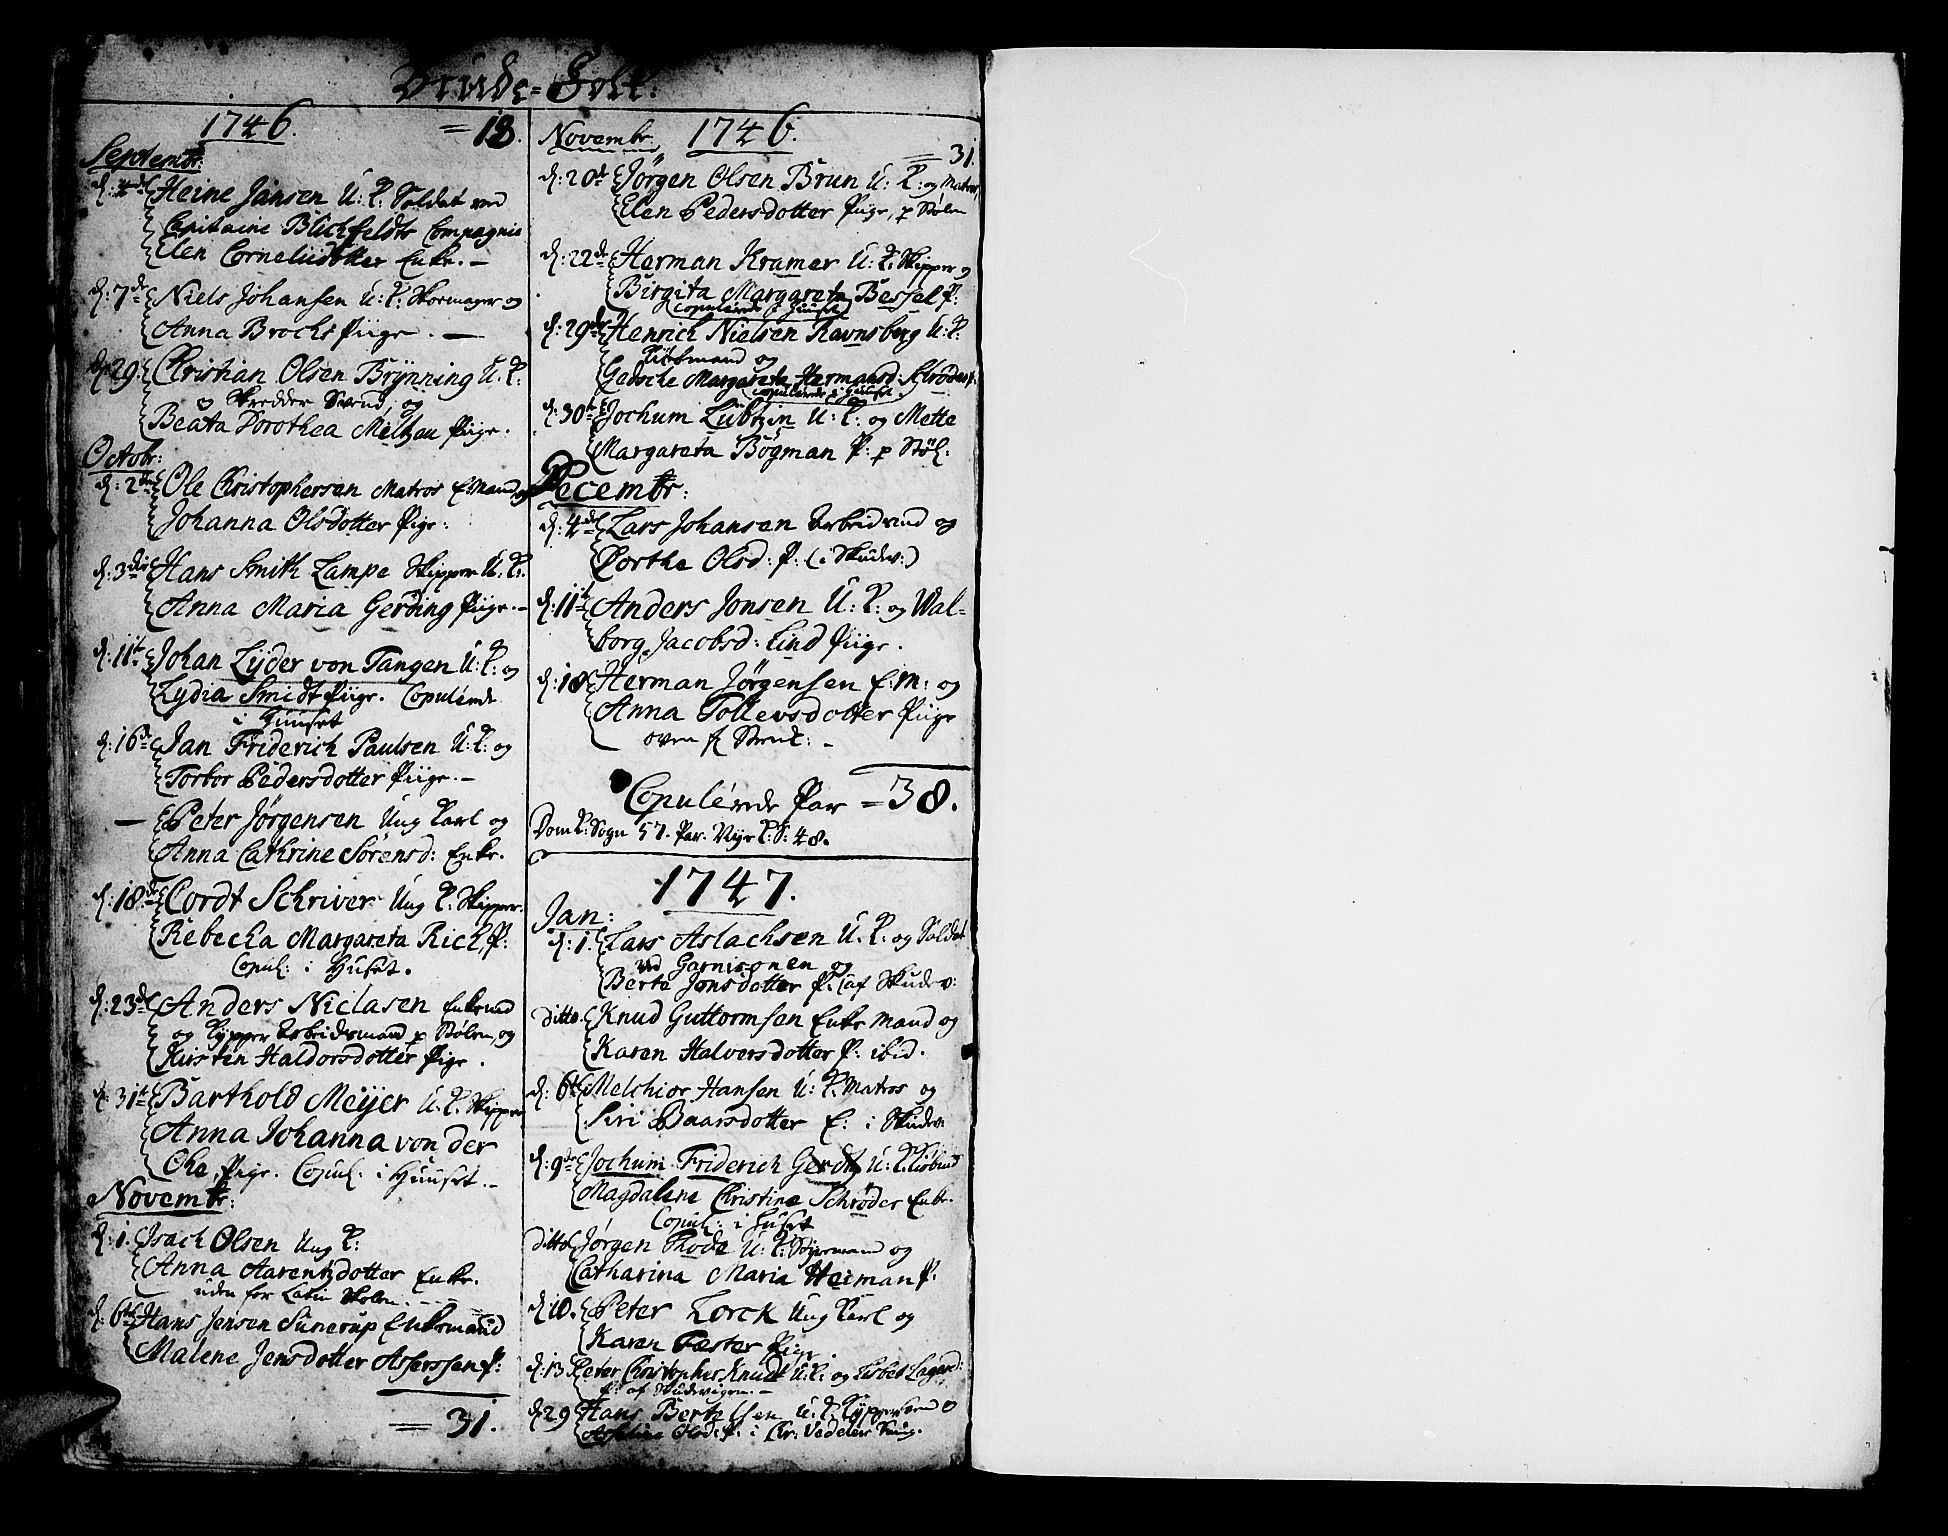 Brude-Folk:
1746. = 18.
Septembr:
d: 4de Heine Jansen U: K: Soldat ved
Capitaine Blichfeldts Compagnie
Elen Corneliidotter Enke. -
d: 7de Niels Johansen U: K: Skomager og
Anna Brochs Piige. -
d: 29. Christian Olsen Brynning U. K:
Skredder Svend og
Beata Dorothea Meltzau Piige.
Octobr:
d: 2den Ole Christophersen Matros E Mand og
Johanna Olsdotter Pige:
d: 3die Hans Smith Lampe Skipper U: K:
Anna Maria Gerding Piige. -
d: 11te Johan Lyder von Tangen U: K: og
Lydia Smidt Piige. Copulerede
i Huuset
d: 16 Jan Friderich Paulsen U: K: og
Torbor Pedersdotter Piige. -
— Peter Jørgensen Ung Karl og
Anna Cathrine Sørensd: Enke.
d: 18de Cordt Schriver Ung K: Skipper.
Rebecka Margareta Rich P:
Copul: i Huset.
d: 23d Anders Niclasen Enkemd
og Kypper Arbeidsmand p Stølen, og
Kirsten Haldorsdotter Pige.
d: 31te Barthold Meijer U. K. Skipper
Anna Johanna von der
Ohe, Pige. Copul: i Huuset. -
Novembr:
d: 1. Isach Olsen Ung K:
Anna Aarentzdotter Enke.
uden for Latin Skolen.
d: 6te Hans Jensen Sunerup Enkemand
Malene Jensdotter Assersen P:
= 31.
Novembr. 1746.
= 31.
d: 20de Jørgen Olsen Brun U: K: og Matros,
Elen Pedersdotter Piige, p Stølen
d: 22de Herman Kramer U: K. Skipper og
Birgita Margareta Bessel P:
(copulerede i Huuset)
d: 29de Henrich Nielsen Ravnsberg U: K:
Kiøbmand og
Gedsche Margareta Hermansd: Schrøder P:
(copulerede i Huuset.)
d: 30te Jochum Lubtzin U: K: og Mette
Margareta Bøgman P: p Støl:
Decembr:
d: 4de Lars Johansen Arbeidsmd og
Dorthe Olsd: P: (i Skudev:)
d: 11te Anders Jonsen U: K: og Wal-
borg Jacobsd: Lind Piige.
d: 18 Herman Jørgensen E: M: og
Anna Tollevsdotter Piige
oven f Strid: -
Copulerede Par = 38.
Dom K: Sogn 57. Par. Nye K: S: 48.
1747.
Jan:
d: 1. Lars Aslachsen U. K: og Soldat
ved Garnisonen og
Berte Jonsdotter P: af Skudev:
ditto. Knud Guttormsen Enke Mand og
Karen Halversdotter P: ibid.
d: 6te Melchior Hansen U: K. Matros og
Siri Baarsdotter E: i Skudev
d: 9de Jochim Friderich Gerdt U: K. Kiøbmd
Magdalene Christine Schrøder Enke.
Copul: i Huset
ditto Jørgen Rode U: K: Styrmand og
Catharina Maria Heiman P:
d: 10. Peter Lorck Ung Karl og
Karen Fæster Pige.
d: 13 Peter Christopher Knudt U: K: og Lisbet Lagesd:
E: af Skudevigen. -
d: 29 Hans Bertelsen U: K. Kyppersvend o
Olsd: P: i Kr: Vedeler Smug.